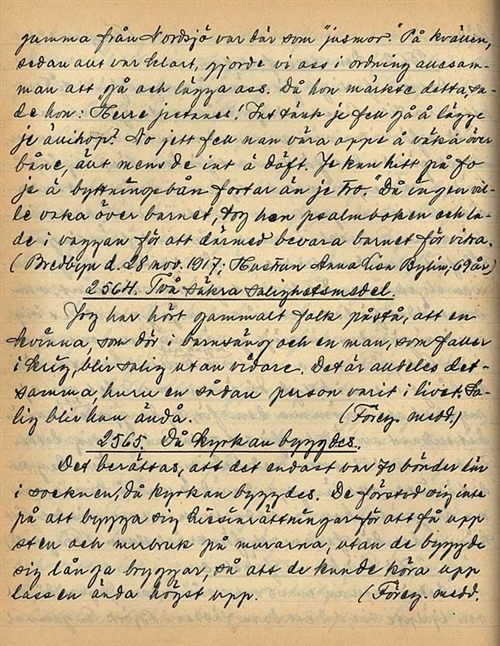 gumma från Nordsjö var där som "jusmor." På kvällen,
sedan allt var klart, gjorde vi oss i ordning allesam-
man att gå och lägga oss. Då hon märkte detta, sa-
de hon: Herre jestanes! Int tänk je fell gå å lägge
je äuihop? No jett fell nan våra oppe å väka över
båne, äut mens de int ä däft. Je kan hitt på fo
je ä byttningsbån fortar än je tro." Då ingen vil-
le vaka över barnet, tog hon psalmboken och la-
de i vaggan för att därmed bevara barnet för vitra.
(Bredbyn d. 28 nov. 1917; Hustrun Anna Lisa Bylin, 69 år)
2564. Två säkra salighetsmedel.
Jag har hört gammalt folk påstå, att en
kvinna, som dör i barnsäng och en man, som faller
i krig, blir salig utan vidare. Det är alldeles det-
samma, huru en sådan person varit i livet. Sa-
lig blir han ändå. (Föreg. medd.)
2565. Då kyrkan byggdes.
Det berättas, att det endast var 70 bönder här
i socknen, då kyrkan byggdes. De förstod sig inte
på att bygga sig hissinrättningar för att få upp
sten och murbruk på murarna, utan de byggde
sig långa bryggor, så att de kunde köra upp
lassen ända högst upp. (Föreg. medd.